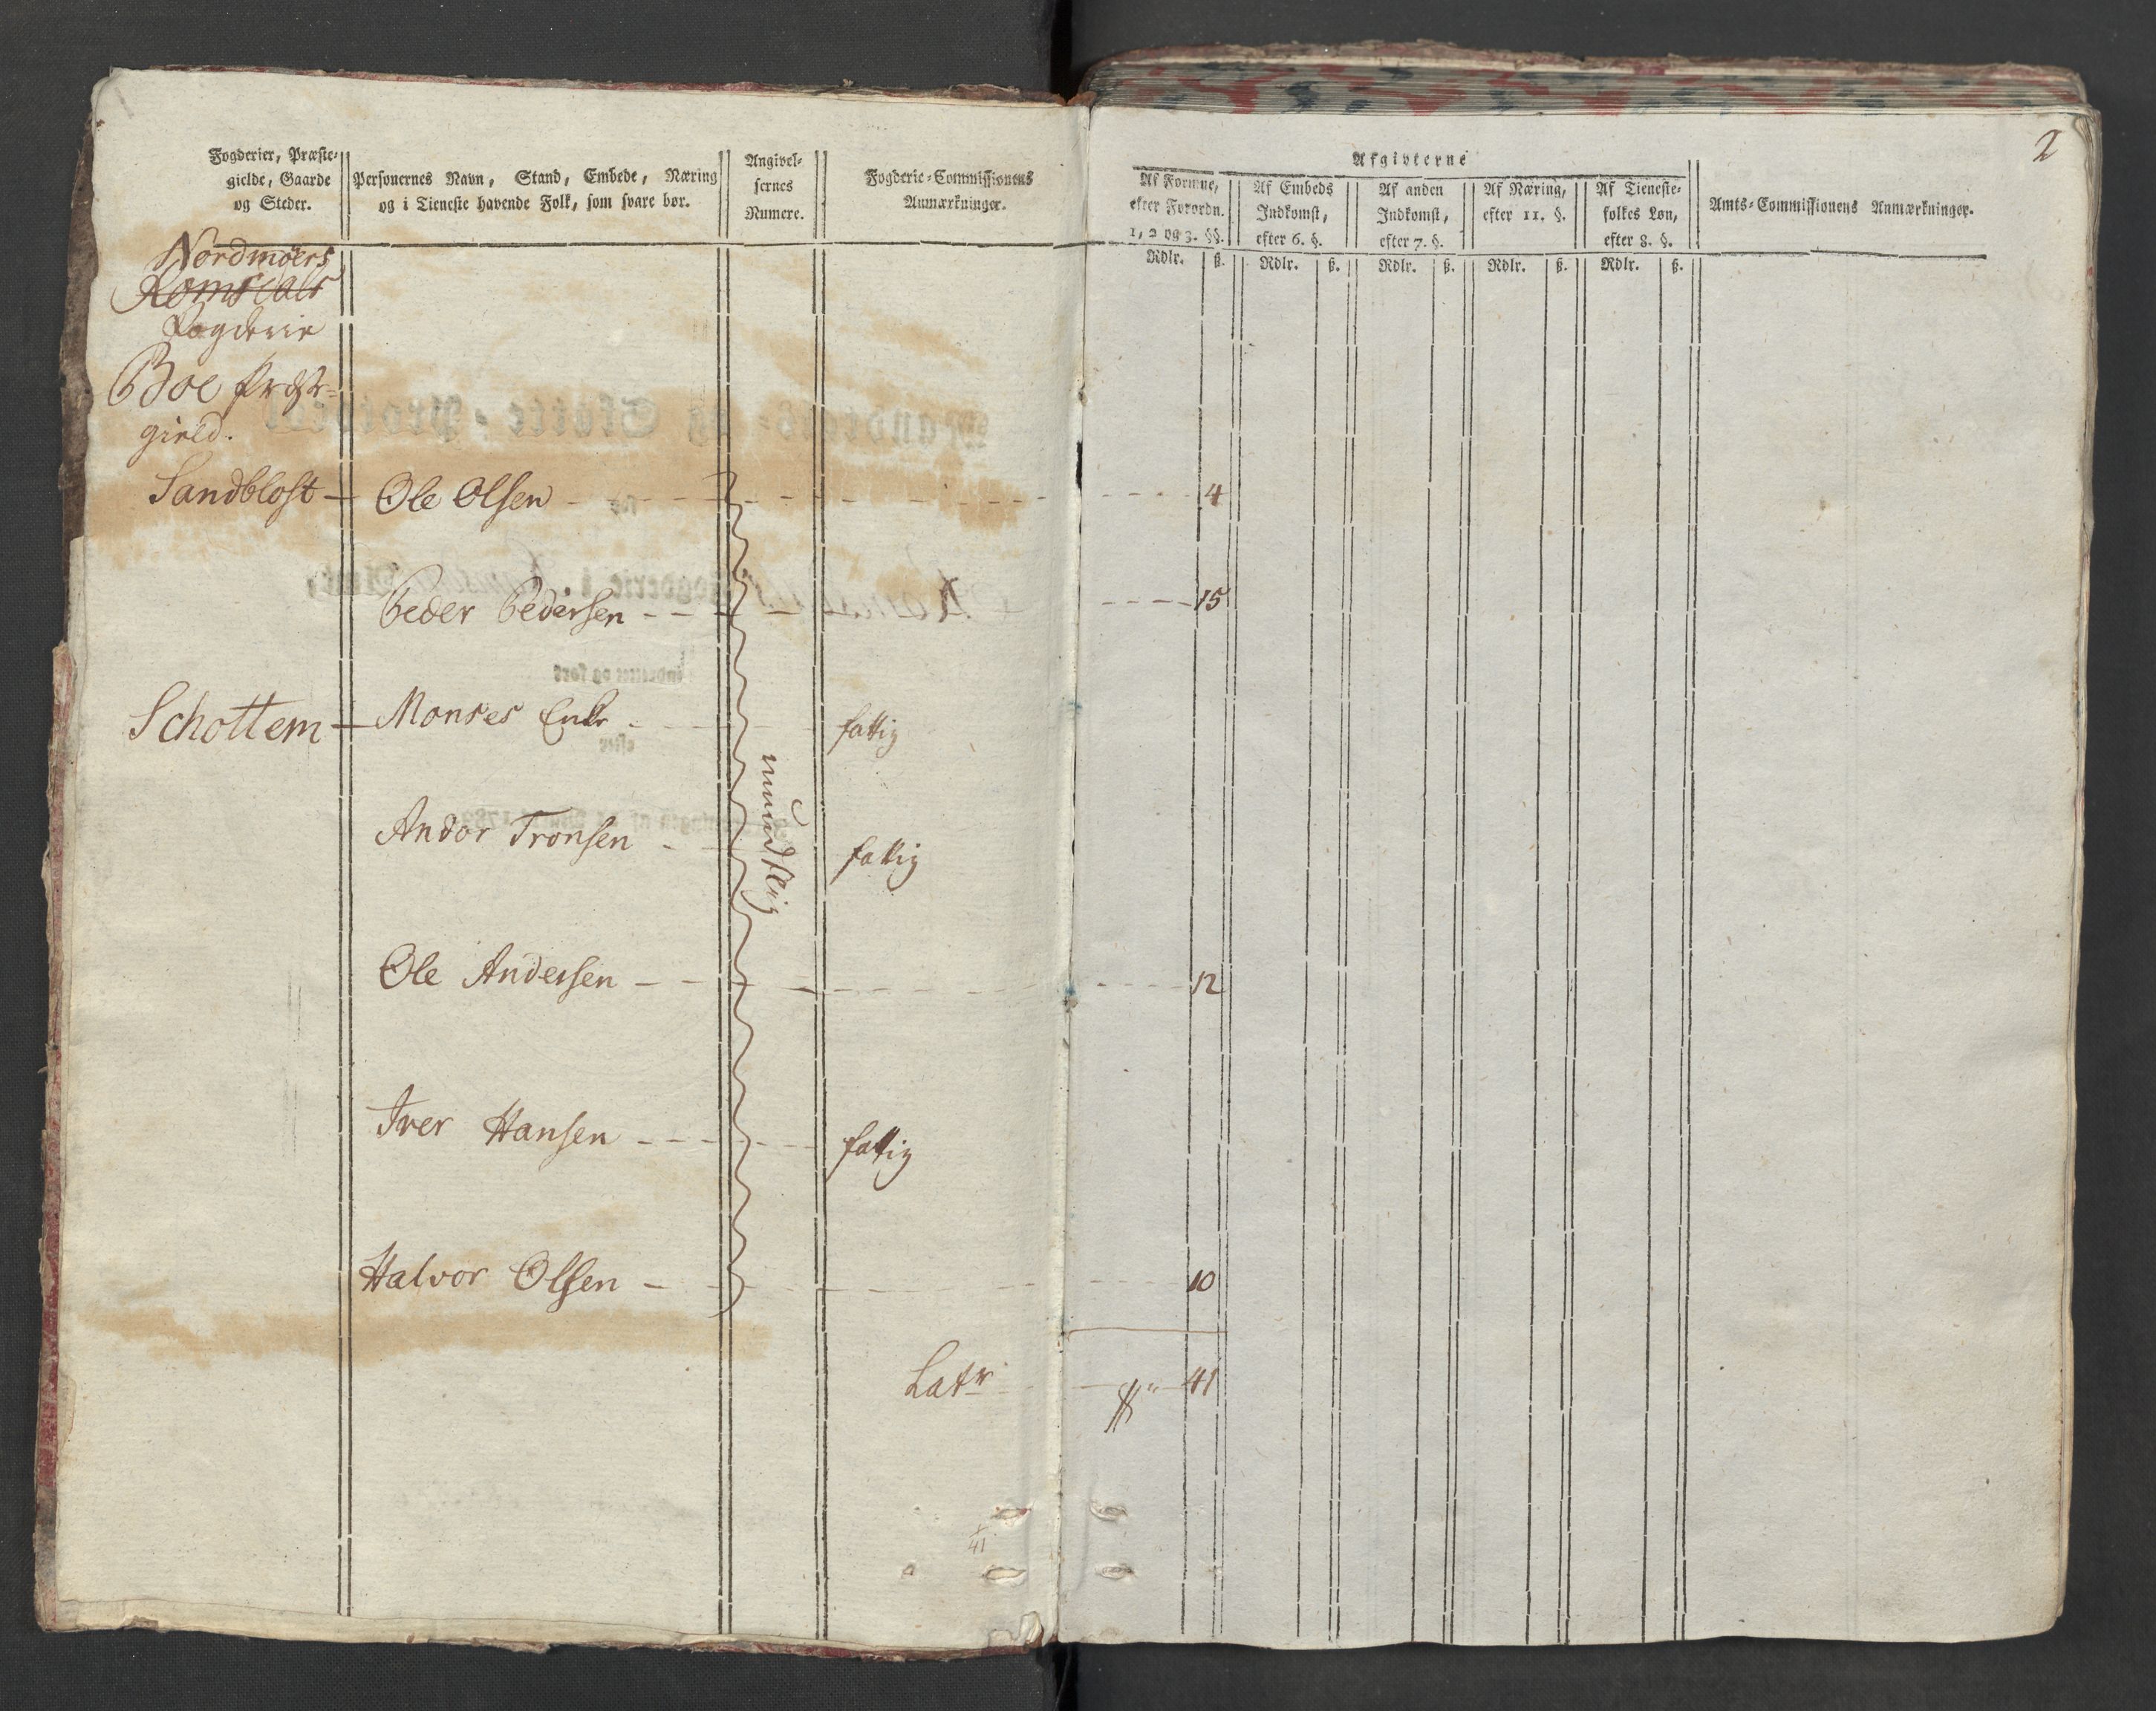 2
Fogderier, Præste-
gielde, Gaarde
og Steder.
Personernes Navn, Stand, Embede, Næring
og i Tieneste havende Folk, som svare bør.
Angivel-
sernes
Numere.
Fogderie-Commissionens
Anmærkninger.
Afgivterne
Af Formue,
efter Forordn.
1, 2 og 3. §§.
Af Embeds
Indkomst,
efter 6. §.
Af anden
Indkomst,
efter 7. §.
Af Næring,
efter 11. §.
Af Tieneste-
folkes Løn,
efter 8. §.
Amts-Commissionens Anmærkninger.
Rdlr. ß. Rdlr. ß. Rdlr. ß. Rdlr. ß. Rdlr. ß.
Nordmöers
Romsdals
Fogderie
Boe Præste-
gield.
Sandblost Ole Olsen 4
Peder Pedersen 15
Schottem Monses Enke fattig
Andor Tronsen fattig
mundtlig
Ole Andersen 12
Iver Hansen fattig
Halvor Olsen 10
Latr 41
41